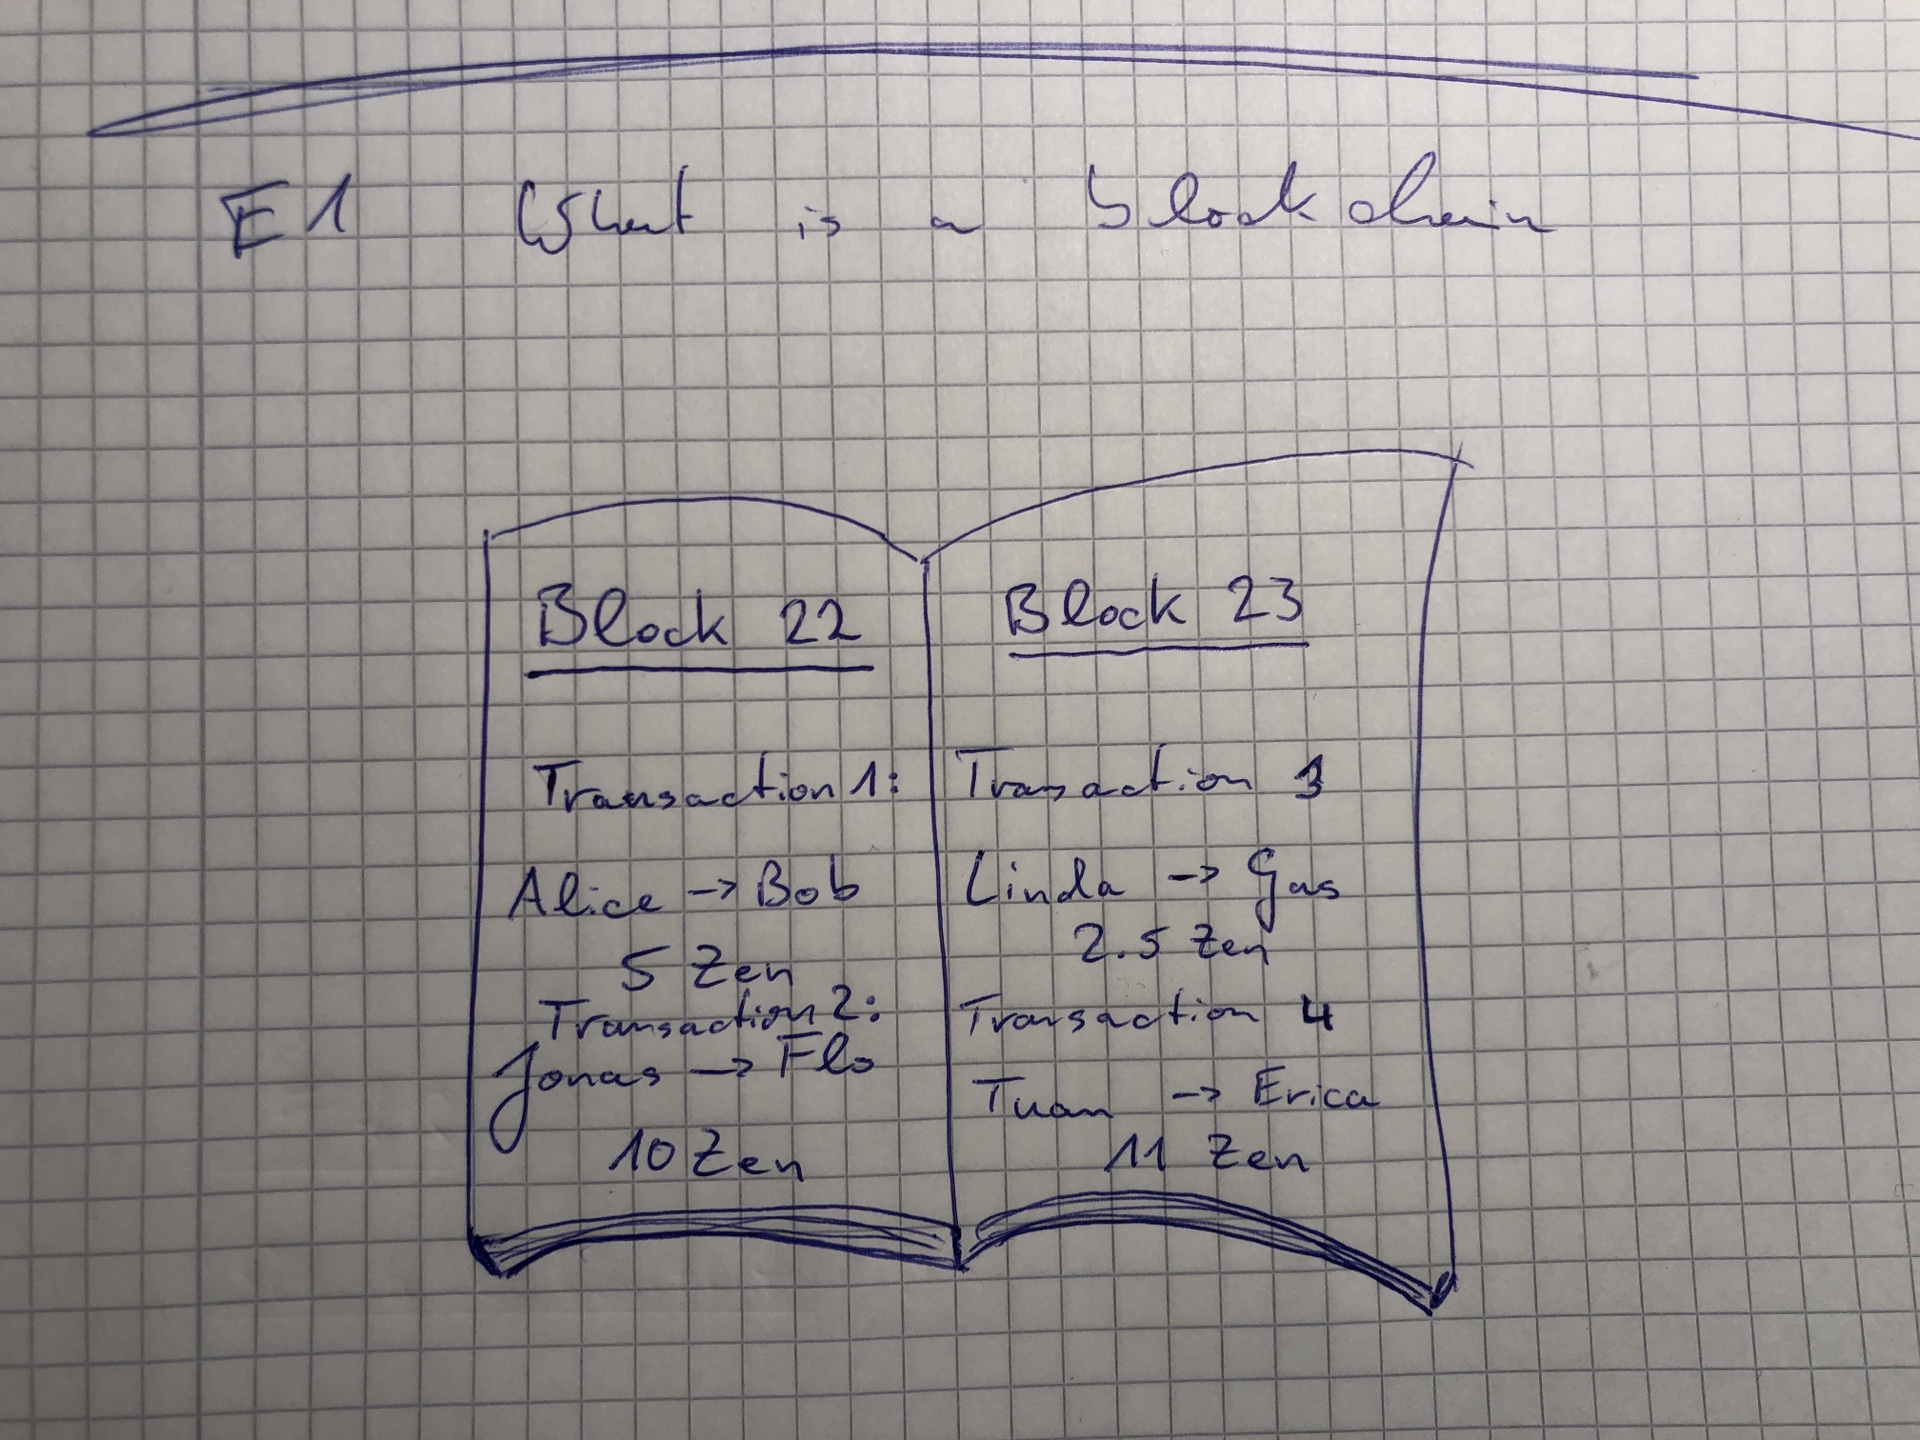 E1 What is a blockchain
Block 22
Transaction 1:
Alice -> Bob
5 Zen
Transaction 2:
Jonas -> Flo
10 Zen
Block 23
Transaction 3
Linda -> Gas
2.5 Zen
Transaction 4
Tuan -> Erica
11 Zen